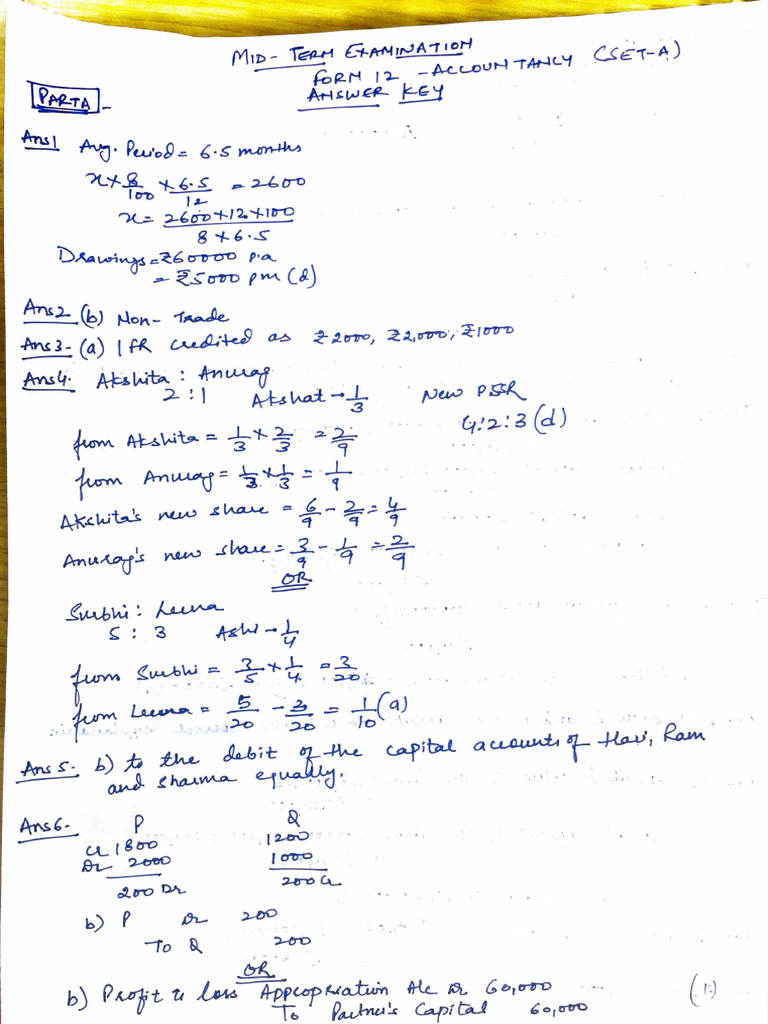 MID-TERM EXAMINATION
FORM 12 - ACCOUNTANCY (SET-A)
ANSWER KEY
PARTA -
Ans1 Avg. Period = 6.5 months
x × 8/100 × 6.5/12 = 2600
x = 2600×12×100 / 8×6.5
Drawings = ₹60000 p.a
= ₹5000 pm (d)
Ans2 (b) Non-Trade
Ans3- (a) IFR credited as ₹2000, ₹2,000, ₹1000
Ans4. Akshita : Anurag
2 : 1 Akshat → 1/3 New PSR
4:2:3 (d)
from Akshita = 1/3 × 2/3 = 2/9
from Anurag = 1/3 × 1/3 = 1/9
Akshita's new share = 6/9 - 2/9 = 4/9
Anurag's new share = 3/9 - 1/9 = 2/9
OR
Surbhi : Leena
5 : 3 Ashi → 1/4
from Surbhi = 3/5 × 1/4 = 3/20
from Leena = 5/20 - 3/20 = 1/10 (a)
Ans 5. b) to the debit of the capital accounts of Hari, Ram
and Sharma equally.
Ans6- P Q
Cr 1800 1200
Dr 2000 1000
200 Dr 200 Cr
b) P Dr 200
To Q 200
OR
b) Profit & loss Appropriation A/c Dr 60,000
To Partner's Capital 60,000